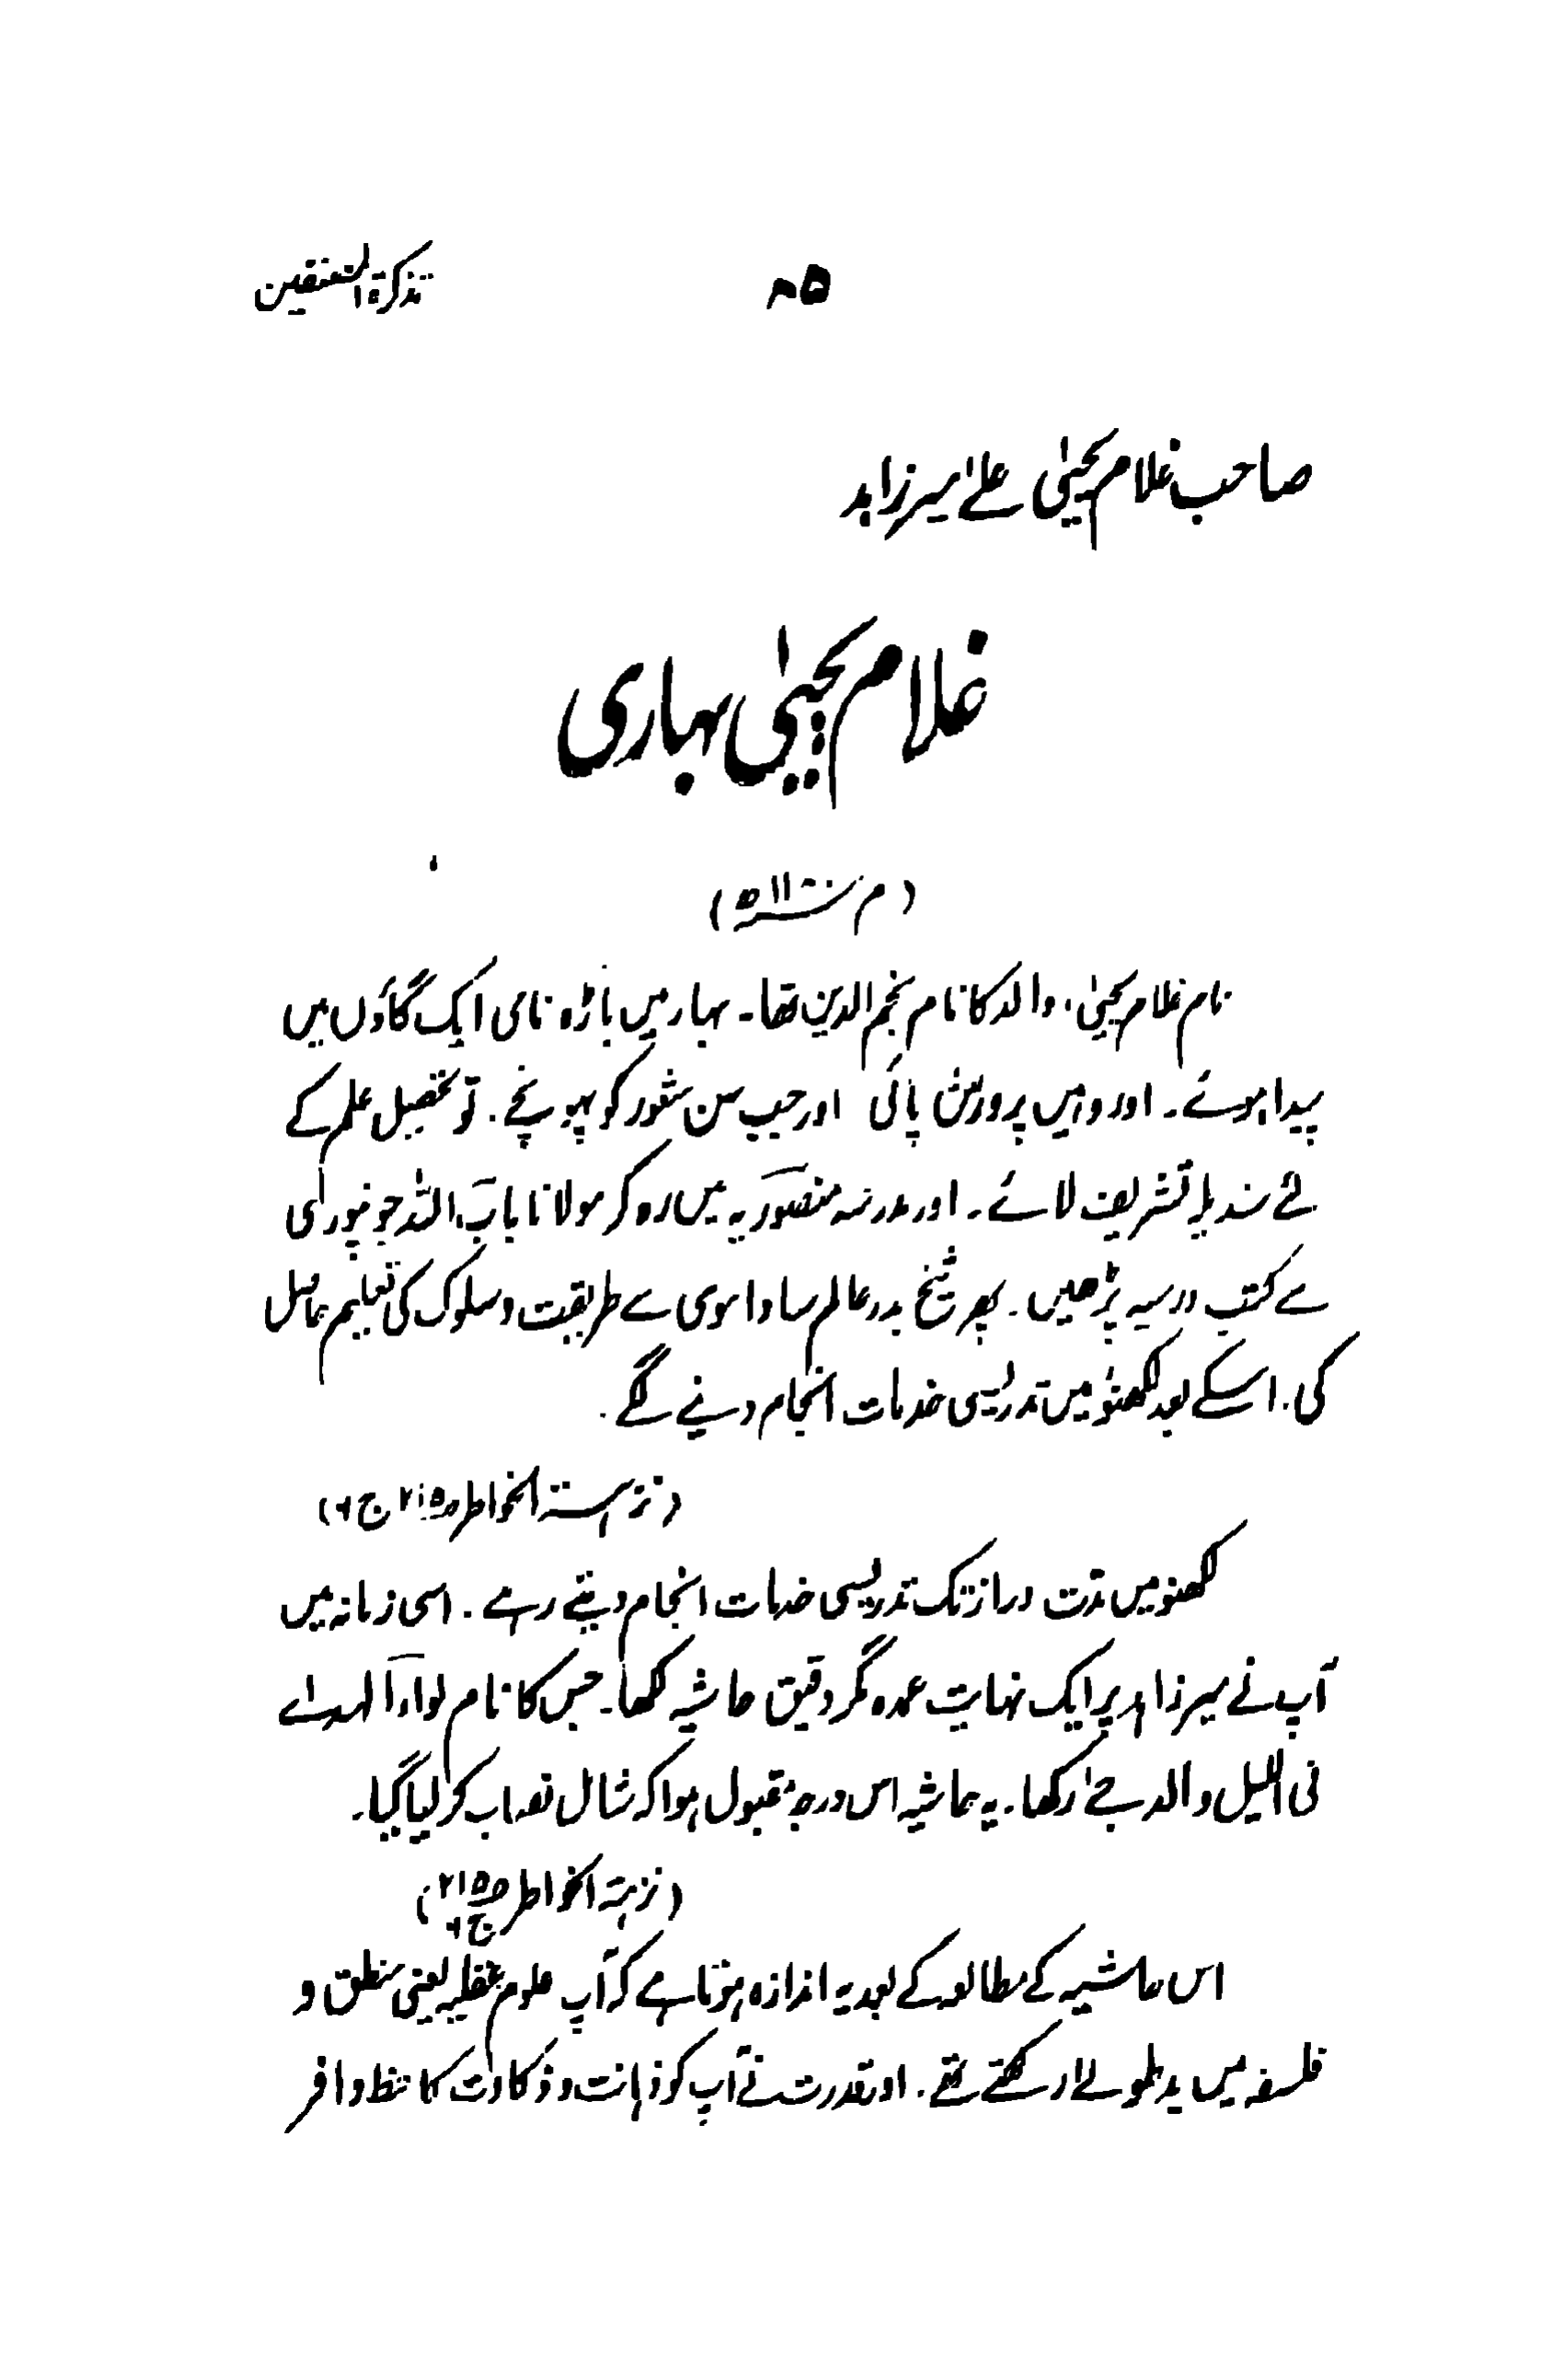 تذکرۃ المصنفین
۸۵
صاحب غلام یحییٰ علیٰ میرزاہد
غلام یحییٰ بہاری
(م ۱۱۸۰ھ)
نام غلام یحییٰ، والد کا نام نجم الدین تھا۔ بہار میں باڑہ نامی ایک گاؤں میں
پیدا ہوئے۔ اور وہیں پرورش پائی اور جب سن شعور کو پہونچے۔ تو تحصیل علم کے
لئے سندیلہ تشریف لائے۔ اور مدرسہ منصوریہ میں رہ کر مولانا باب اللہ جونپوری
سے کتب درسیہ پڑھیں۔ پھر شیخ بدر عالم ساداموی سے طریقت و سلوک کی تعلیم حاصل
کی۔ اسکے بعد لکھنؤ میں تدریسی خدمات انجام دینے لگے۔
(نزہۃ الخواطر ص۲۱۵ ج۶)
لکھنؤ میں مدت دراز تک تدریسی خدمات انجام دیتے رہے۔ اسی زمانہ میں
آپ نے میرزاہد پر ایک نہایت عمدہ مگر دقیق حاشیہ لکھا۔ جس کا نام لواء الہدیٰ
فی اللیل والدجیٰ رکھا۔ یہ حاشیہ اس درجہ مقبول ہوا کہ شامل نصاب کر لیا گیا۔
(نزہۃ الخواطر ص۲۱۵ ج۶)
اس حاشیہ کے مطالعہ کے بعد یہ اندازہ ہوتا ہے کہ آپ علوم عقلیہ یعنی منطق و
فلسفہ میں ید طولےٰ رکھتے تھے۔ اور قدرت نے آپ کو ذہانت و ذکاوت کا حظ وافر